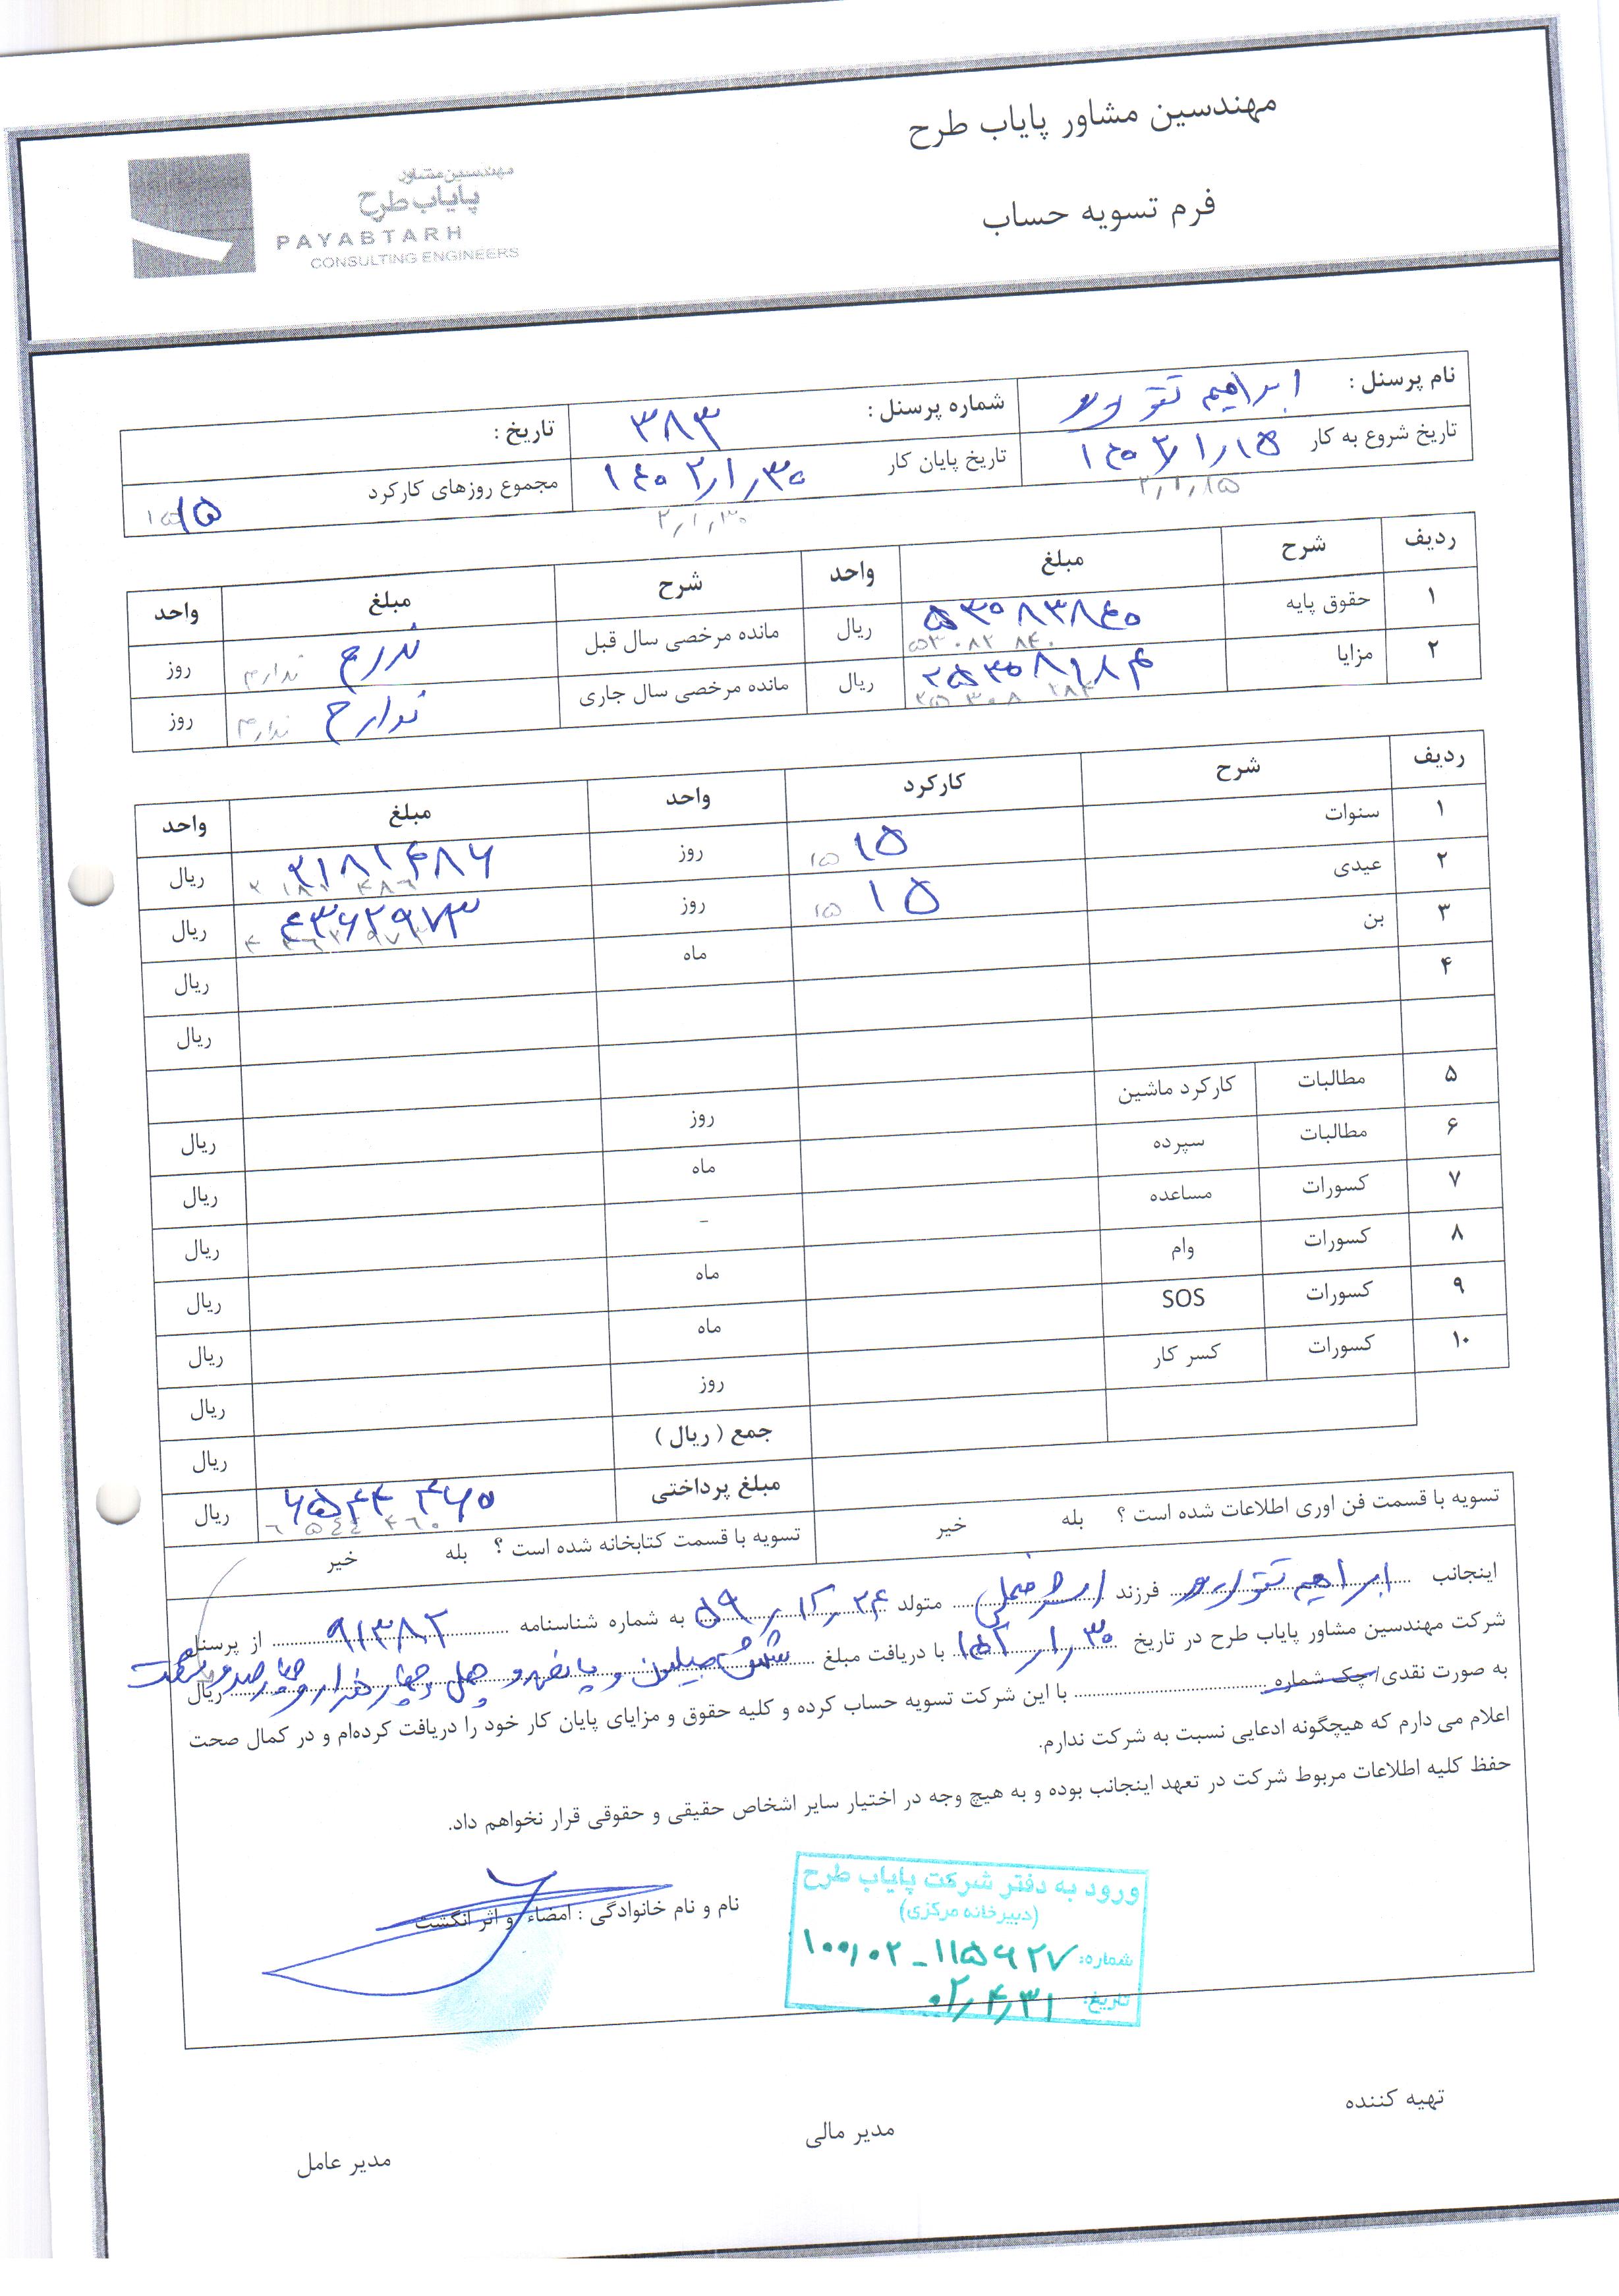 مهندسین مشاور پایاب طرح
فرم تسویه حساب
مهندسین مشاور
پایاب طرح
PAYABTARH
CONSULTING ENGINEERS
نام پرسنل : ابراهیم شماره پرسنل : ۳۸۳ تاریخ :
تاریخ شروع به کار ۱۴۰۲/۱/۱۵ تاریخ پایان کار ۱۴۰۲/۱/۳۰ مجموع روزهای کارکرد ۱۵
۲/۱/۱۵ ۲/۱/۳۰ ۱۵
ردیف شرح مبلغ واحد شرح مبلغ واحد
۱ حقوق پایه ۵۳۰۸۳۸۴۰ ریال مانده مرخصی سال قبل ندارم روز
۵۳۰۸۳۸۴۰ ندارم
۲ مزایا ۲۵۳۰۸۱۸۴ ریال مانده مرخصی سال جاری ندارم روز
۲۵۳۰۸۱۸۴ ندارم
ردیف شرح کارکرد واحد مبلغ واحد
۱ سنوات ۱۵ ۱۵ روز ۲۱۸۱۴۸۶ ریال
۲ ۱۸۱ ۴۸۶
۲ عیدی ۱۵ ۱۵ روز ۴۳۶۲۹۷۳ ریال
۴ ۳۶۲ ۹۷۳
۳ بن ماه ریال
۴ ریال
۵ مطالبات کارکرد ماشین روز ریال
۶ مطالبات سپرده ماه ریال
۷ کسورات مساعده - ریال
۸ کسورات وام ماه ریال
۹ کسورات SOS ماه ریال
۱۰ کسورات کسر کار روز ریال
جمع ( ریال ) ریال
مبلغ پرداختی ۶۵۴۴۴۶۰ ریال
۶ ۵۴۴ ۴۶۰
تسویه با قسمت فن اوری اطلاعات شده است ؟ بله خیر تسویه با قسمت کتابخانه شده است ؟ بله خیر
اینجانب ابراهیم فرزند متولد ۵۹/۱۲/۲۴ به شماره شناسنامه ۹۱۳۸۲ از پرسنل
شرکت مهندسین مشاور پایاب طرح در تاریخ ۳۰/۱/ با دریافت مبلغ شش میلیون و پانصد و چهل و چهار هزار و چهارصد و شصت ریال
به صورت نقدی/چک شماره با این شرکت تسویه حساب کرده و کلیه حقوق و مزایای پایان کار خود را دریافت کرده‌ام و در کمال صحت
اعلام می دارم که هیچگونه ادعایی نسبت به شرکت ندارم.
حفظ کلیه اطلاعات مربوط شرکت در تعهد اینجانب بوده و به هیچ وجه در اختیار سایر اشخاص حقیقی و حقوقی قرار نخواهم داد.
نام و نام خانوادگی : امضاء و اثر انگشت
ورود به دفتر شرکت پایاب طرح
(دبیرخانه مرکزی)
شماره: ۱۰۰,۰۲ـ۱۱۵۶۲۷
تاریخ: ۰۲/۴/۳۱
تهیه کننده
مدیر مالی
مدیر عامل